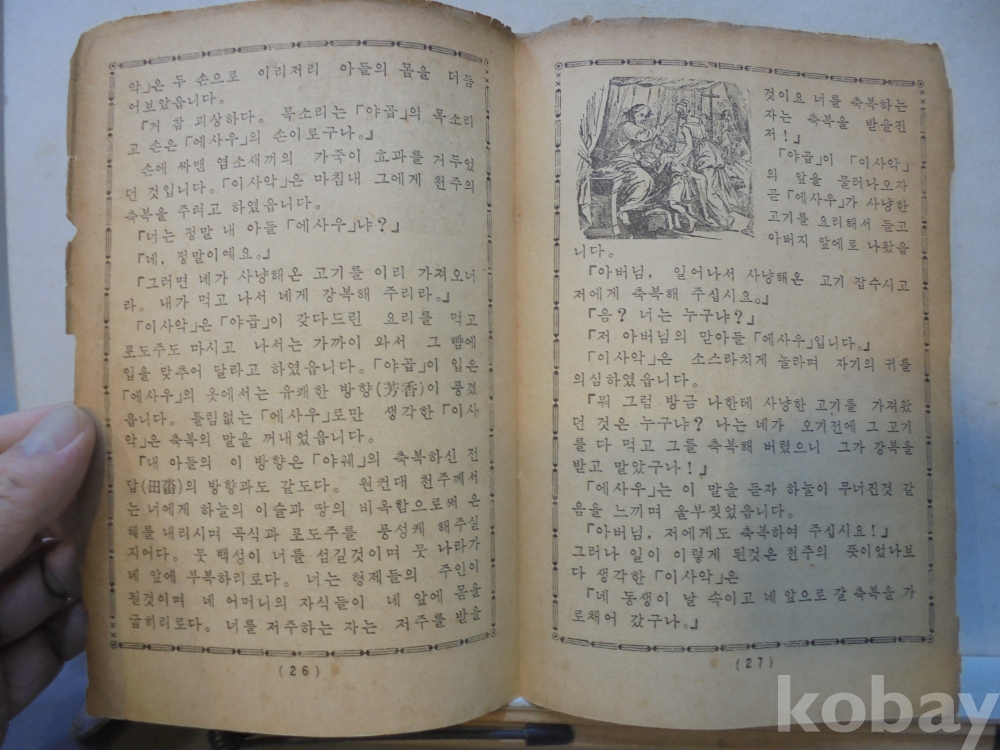 악」은 두 손으로 이리저리 아들의 몸을 더듬
어보았읍니다.
『거 참 괴상하다. 목소리는「야곱」의 목소리
고 손은「에사우」의 손이로구나。』
손에 싸맨 염소새끼의 가죽이 효과를 거두었
던 것입니다。「이사악」은 마침내 그에게 천주의
축복을 주려고 하였읍니다.
『너는 정말 내 아들「에사우」냐?』
『네, 정말이예요。』
『그러면 네가 사냥해온 고기를 이리 가져오너
라. 내가 먹고 나서 네게 강복해 주리라。』
「이사악」은「야곱」이 갖다드린 요리를 먹고
포도주도 마시고 나서는 가까이 와서 그 뺨에
입을 맞추어 달라고 하였읍니다。「야곱」이 입은
「에사우」의 옷에서는 유쾌한 방향(芳香)이 풍겼
읍니다. 틀림없는「에사우」로만 생각한「이사
악」은 축복의 말을 꺼내었읍니다.
『내 아들의 이 방향은「야웨」의 축복하신 전
답(田畓)의 방향과도 같도다. 원컨대 천주께서
는 너에게 하늘의 이슬과 땅의 비옥함으로써 은
혜를 내리시며 곡식과 포도주를 풍성케 해주실
지어다. 뭇 백성이 너를 섬길것이며 뭇 나라가
네 앞에 부복하리로다. 너는 형제들의 주인이
될것이며 네 어머니의 자식들이 네 앞에 몸을
굽히리로다. 너를 저주하는 자는 저주를 받을
(26)
것이요 너를 축복하는
자는 축복을 받을진
저!』
「야곱」이 「이사악」
의 앞을 물러나오자
곧「에사우」가 사냥한
고기를 요리해서 들고
아버지 앞에로 나왔읍
니다.
『아버님, 일어나서 사냥해온 고기 잡수시고
저에게 축복해 주십시요。』
『음? 너는 누구냐?』
『저 아버님의 맏아들「에사우」입니다。』
「이사악」은 소스라치게 놀라며 자기의 귀를
의심하였읍니다.
『뭐 그럼 방금 나한테 사냥한 고기를 가져왔
던 것은 누구냐? 나는 네가 오기전에 그 고기
를 다 먹고 그를 축복해 버렸으니 그가 강복을
받고 말았구나!』
「에사우」는 이 말을 듣자 하늘이 무너진것 같
음을 느끼며 울부짖었읍니다.
『아버님, 저에게도 축복하여 주십시요!』
그러나 일이 이렇게 된것은 천주의 뜻이었나보
다 생각한「이사악」은
『네 동생이 날 속이고 네 앞으로 갈 축복을 가
로채어 갔구나。』
(27)
kobay